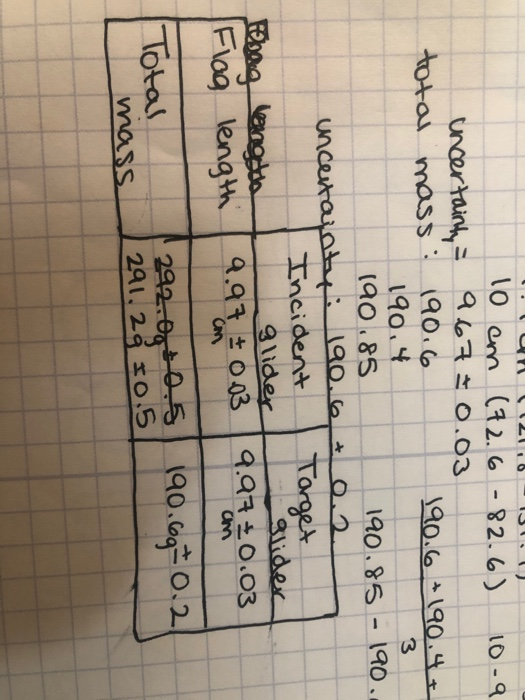 10 cm (72.6 - 82.6) 10-9
uncertainty = 9.67 ± 0.03
total mass: 190.6
190.4
190.85
190.6 + 190.4 +
3
190.85 - 190.
uncertainty: 190.6 ± 0.2
Incident glider
Target glider
Flag length
9.97 ± 0.03 cm
9.97 ± 0.03 cm
Total mass
292.0g ± 0.5
291.2g ± 0.5
190.6g ± 0.2